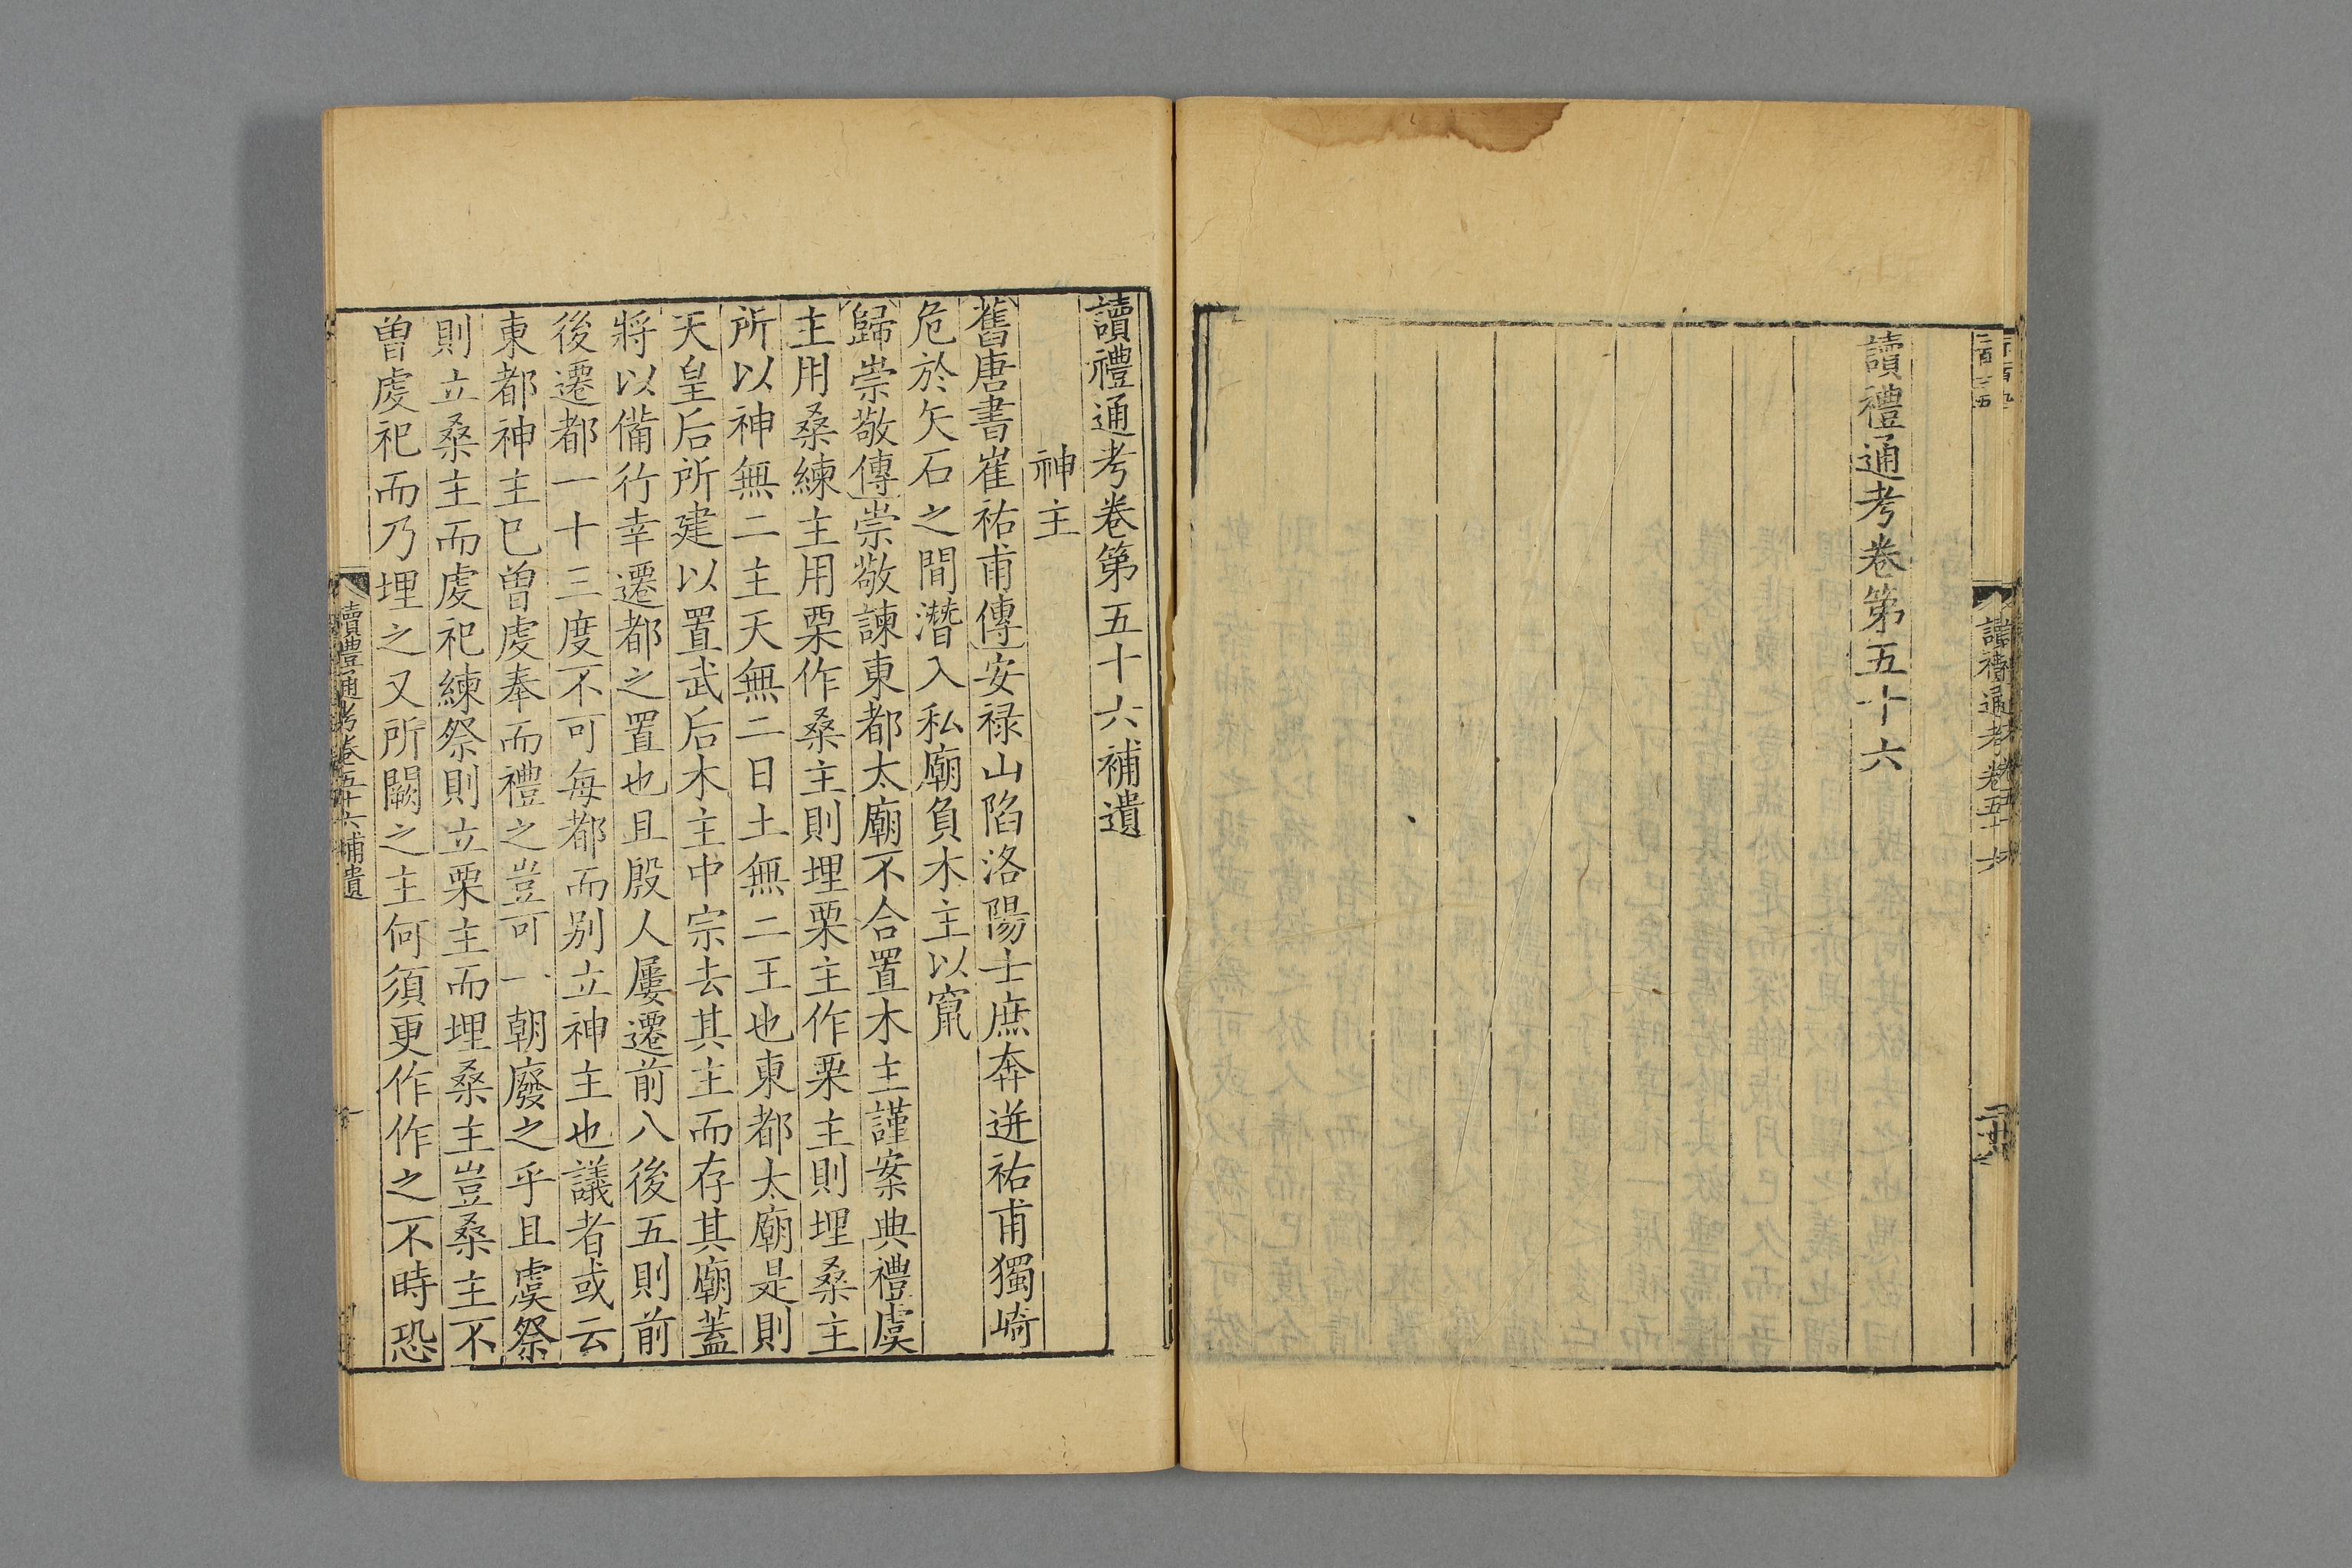 讀禮通考卷第五十六
讀禮通考卷第五十六補遺
神主
舊唐書崔祐甫傳安禄山陷洛陽士庶奔迸祐甫獨崎
危於矢石之間潛入私廟負木主以竄
歸崇敬傳崇敬諫東都太廟不合置木主謹案典禮虞
主用桑練主用栗作桑主則埋栗主作栗主則埋桑主
所以神無二主天無二日土無二王也東都太廟是則
天皇后所建以置武后木主中宗去其主而存其廟蓋
將以備行幸遷都之置也且殷人屢遷前八後五則前
後遷都一十三度不可每都而别立神主也議者或云
東都神主已曾虔奉而禮之豈可一朝廢之乎且虞祭
則立桑主而虔祀練祭則立栗主而埋桑主豈桑主不
曾虔祀而乃埋之又所闕之主何須更作作之不時恐
讀禮通考卷五十六補遺